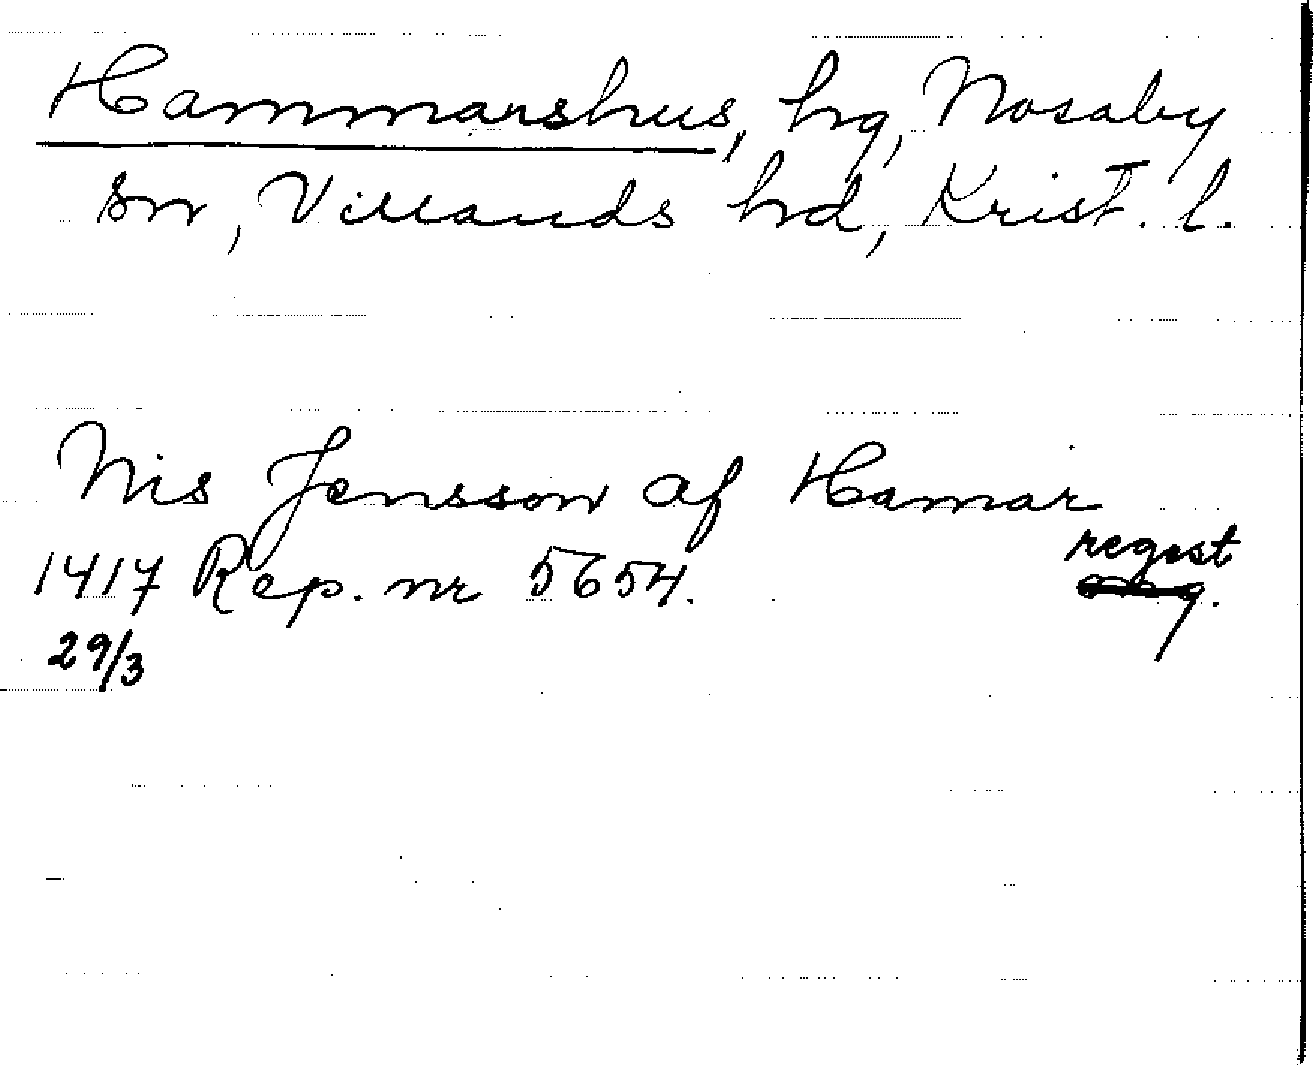 Hammarshus, hg, Nosaby
sn, Villands hd, Krist. l.
Nis Jensson af Hamar
regest
1417 Rep. nr 5654.
29/3